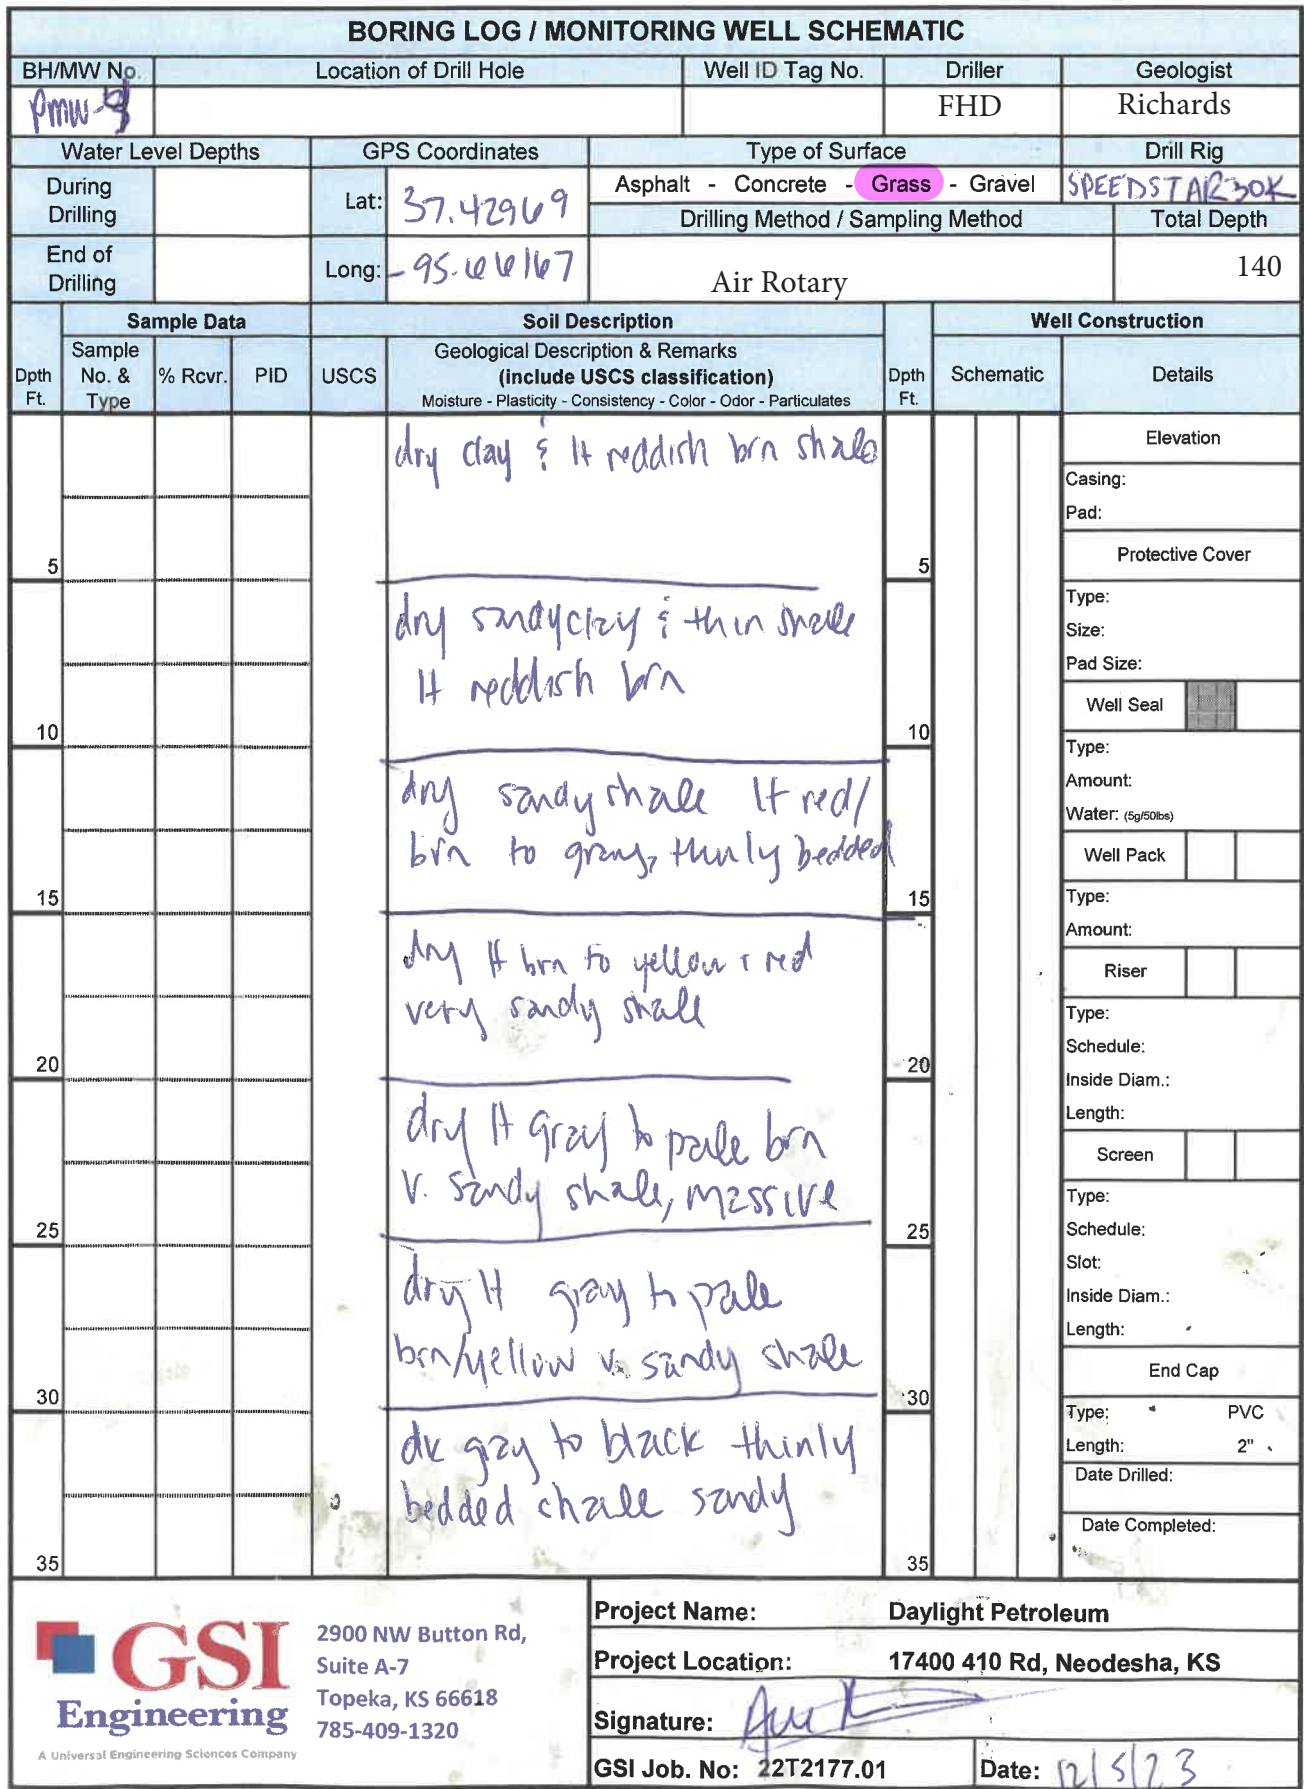 BORING LOG / MONITORING WELL SCHEMATIC
BH/MW No. Location of Drill Hole Well ID Tag No. Driller Geologist
pmw- FHD Richards
Water Level Depths GPS Coordinates Type of Surface Drill Rig
During Drilling Lat: 37.42969 Asphalt - Concrete - Grass - Gravel SPEEDSTAR 30K
Drilling Method / Sampling Method Total Depth
End of Drilling Long: -95.66167 Air Rotary 140
Sample Data Soil Description Well Construction
Dpth Ft. Sample No. & Type % Rcvr. PID USCS Geological Description & Remarks
(include USCS classification)
Moisture - Plasticity - Consistency - Color - Odor - Particulates
Dpth Ft. Schematic Details
dry clay & lt reddish brn shale
5 5
dry sandy clay & thin shale
lt reddish brn
10 10
dry sandy shale lt red/
brn to gray, thinly bedded
15 15
dry lt brn to yellow & red
very sandy shale
20 20
dry lt gray to pale brn
v. sandy shale, massive
25 25
dry lt gray to pale
brn/yellow v. sandy shale
30 30
dk gray to black thinly
bedded shale sandy
35 35
Elevation
Casing:
Pad:
Protective Cover
Type:
Size:
Pad Size:
Well Seal
Type:
Amount:
Water: (5g/50lbs)
Well Pack
Type:
Amount:
Riser
Type:
Schedule:
Inside Diam.:
Length:
Screen
Type:
Schedule:
Slot:
Inside Diam.:
Length:
End Cap
Type: PVC
Length: 2"
Date Drilled:
Date Completed:
GSI
Engineering
A Universal Engineering Sciences Company
2900 NW Button Rd,
Suite A-7
Topeka, KS 66618
785-409-1320
Project Name: Daylight Petroleum
Project Location: 17400 410 Rd, Neodesha, KS
Signature:
GSI Job. No: 22T2177.01 Date: 12/5/23